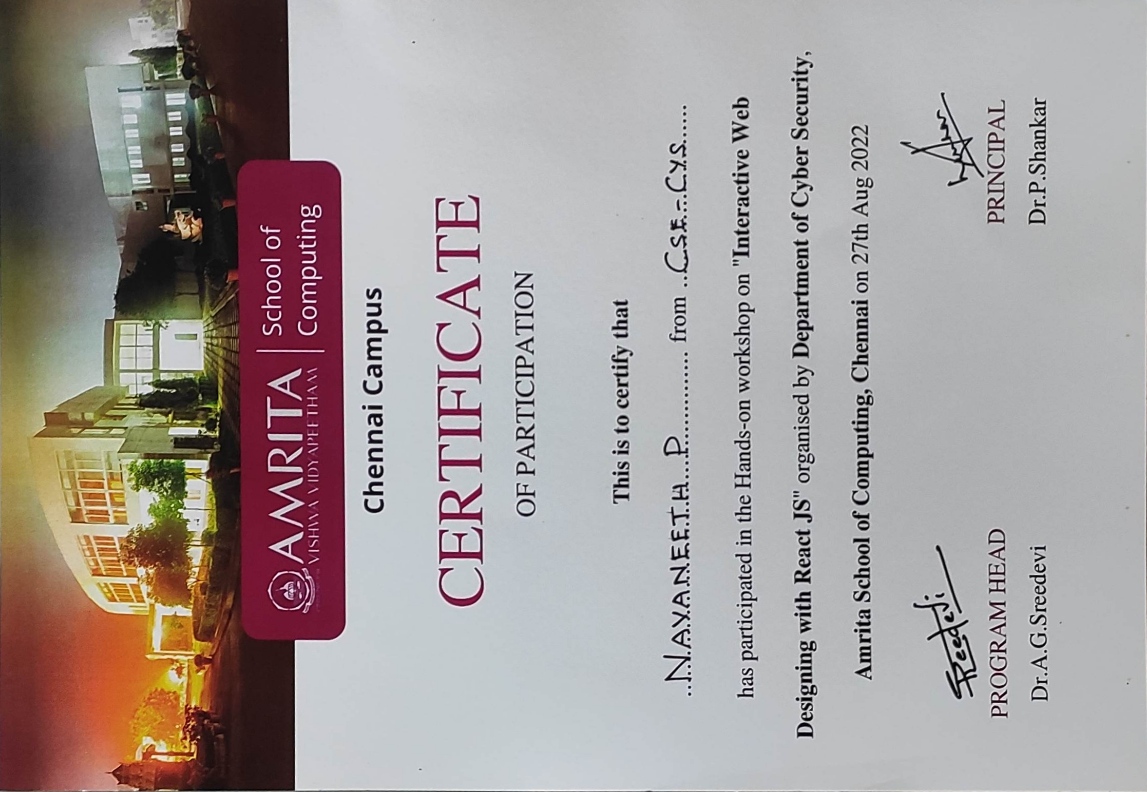 AMRITA
VISHWA VIDYAPEETHAM
School of
Computing
Chennai Campus
CERTIFICATE
OF PARTICIPATION
This is to certify that
NAVANEETH P from CSE-CYS
has participated in the Hands-on workshop on "Interactive Web
Designing with React JS" organised by Department of Cyber Security,
Amrita School of Computing, Chennai on 27th Aug 2022
Sreedevi
PROGRAM HEAD
Dr.A.G.Sreedevi
PRINCIPAL
Dr.P.Shankar